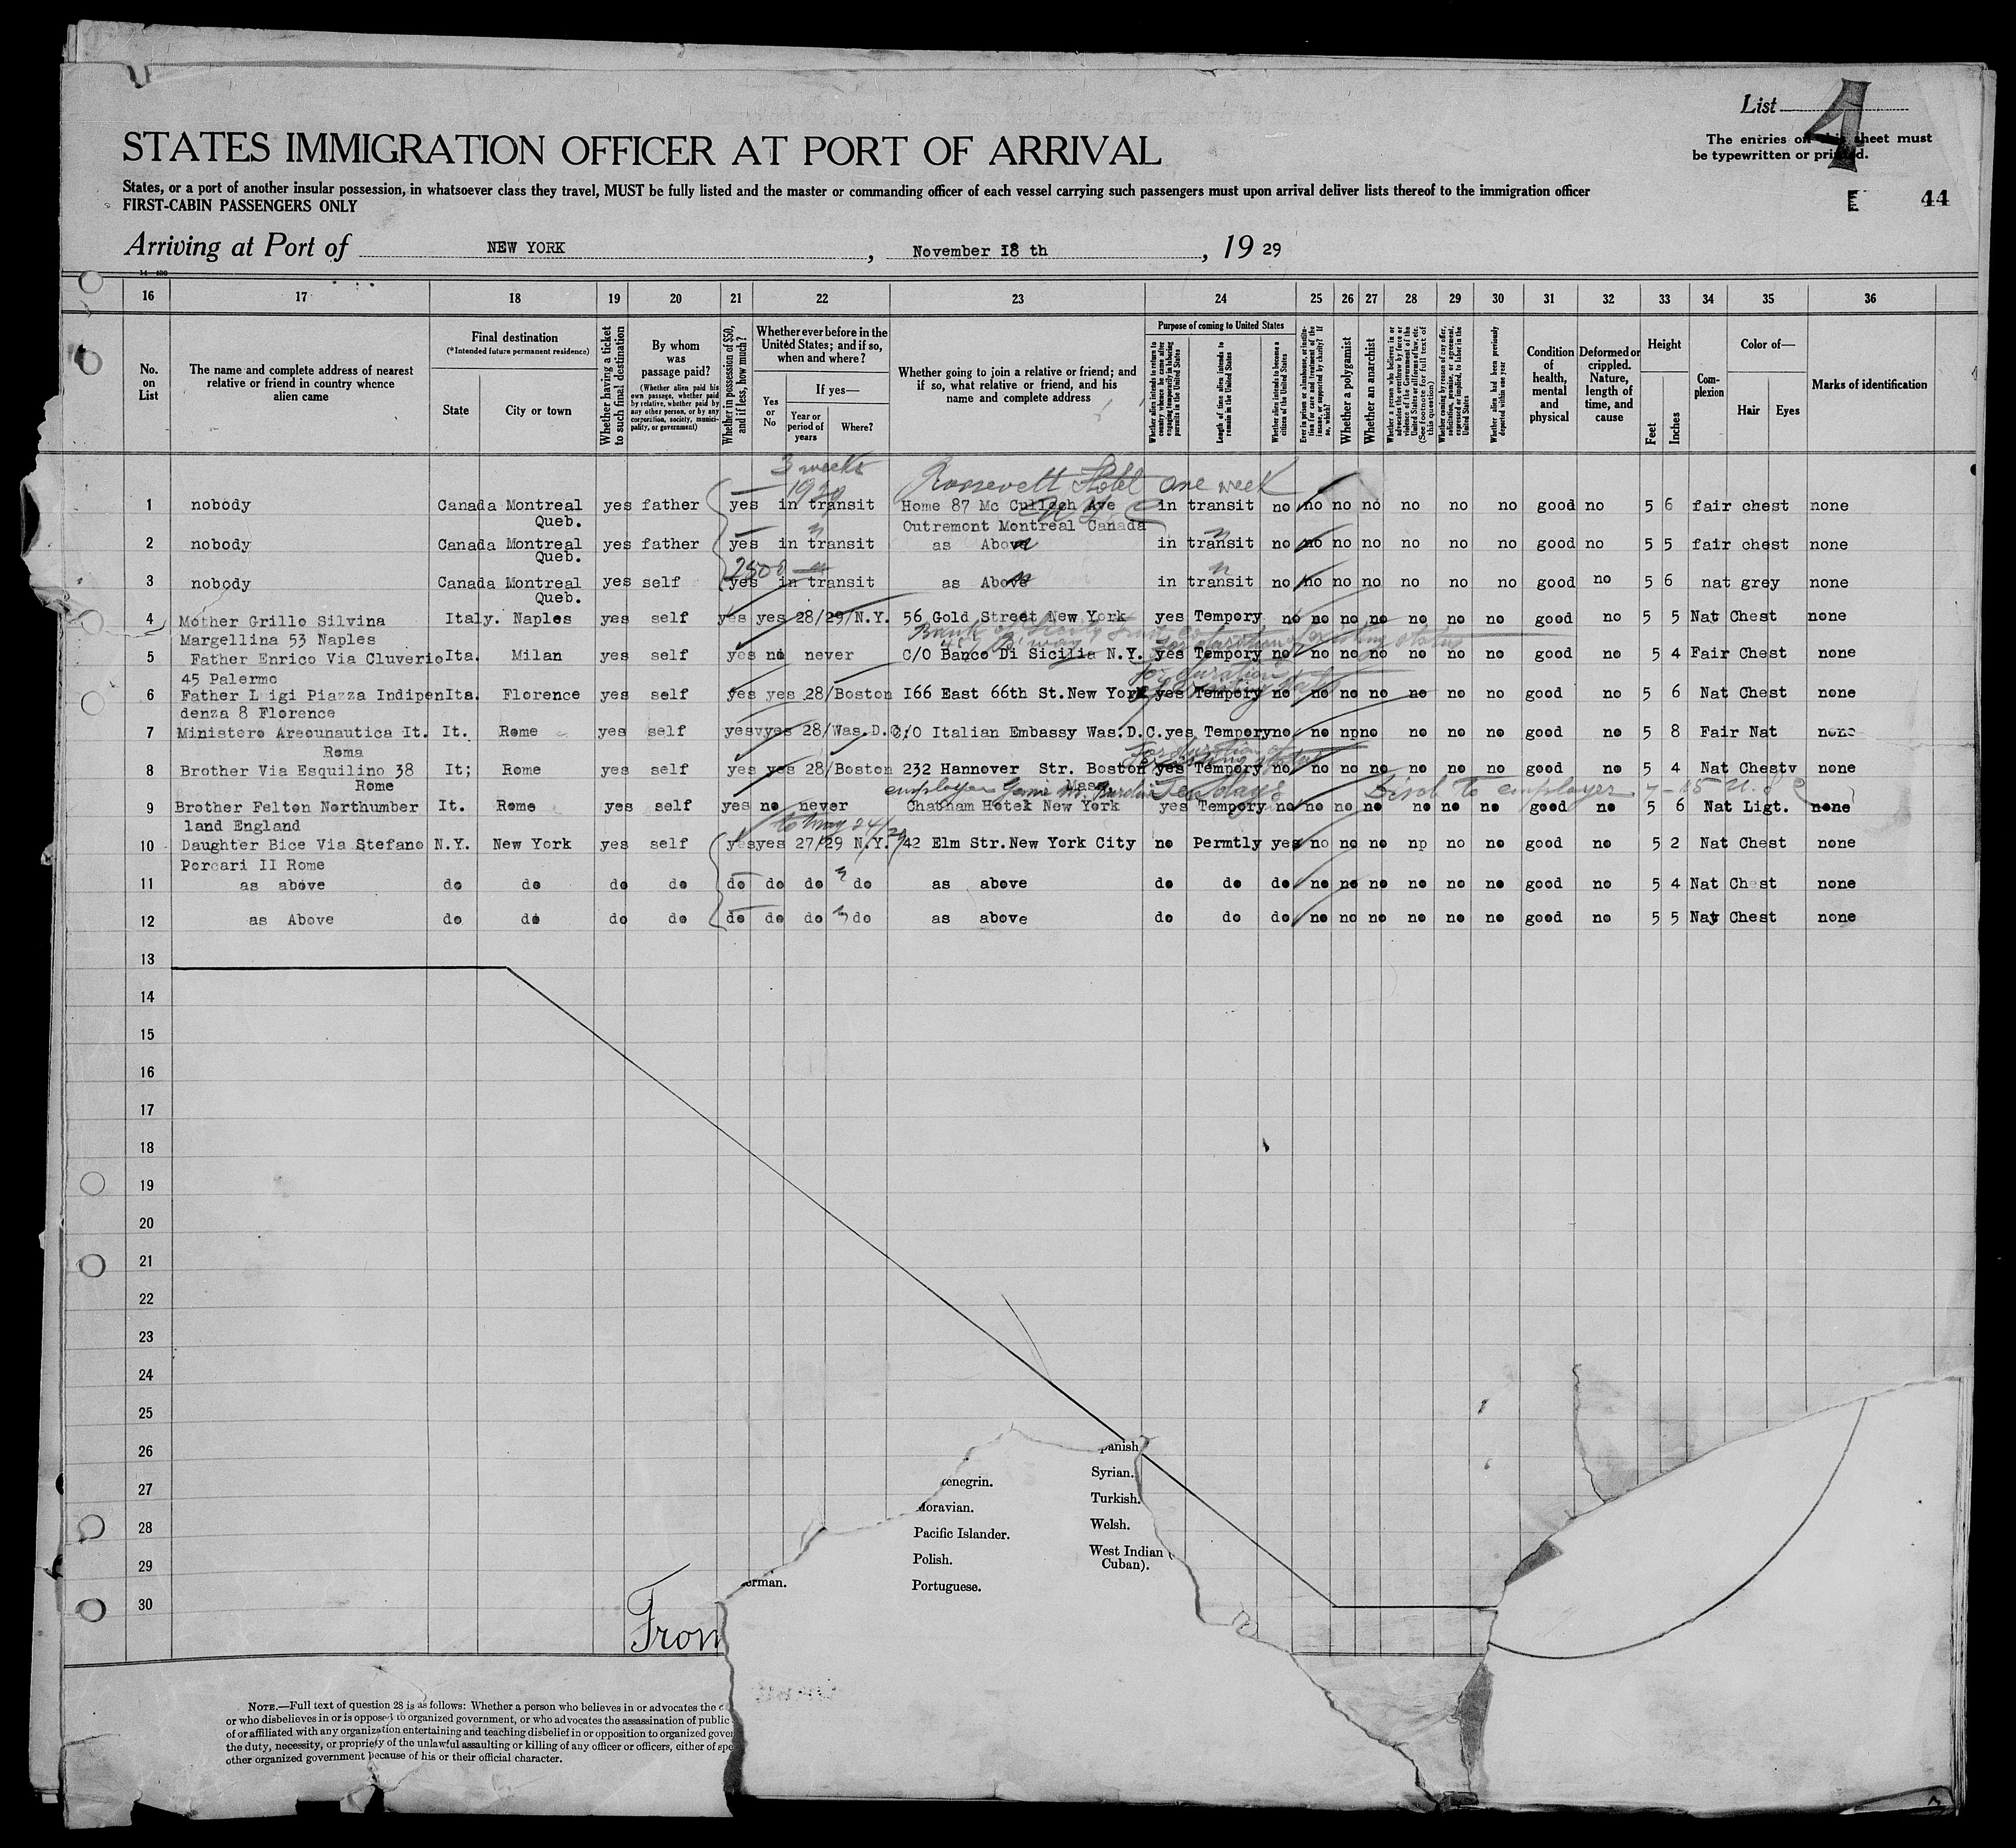 List 4
The entries on this sheet must
be typewritten or printed.
STATES IMMIGRATION OFFICER AT PORT OF ARRIVAL
States, or a port of another insular possession, in whatsoever class they travel, MUST be fully listed and the master or commanding officer of each vessel carrying such passengers must upon arrival deliver lists thereof to the immigration officer
FIRST-CABIN PASSENGERS ONLY
E 44
Arriving at Port of NEW YORK, November 18 th, 19 29
16 17 18 19 20 21 22 23 24 25 26 27 28 29 30 31 32 33 34 35 36
No. on List
The name and complete address of nearest relative or friend in country whence alien came
Final destination
(*Intended future permanent residence)
State
City or town
Whether having a ticket to such final destination
By whom was passage paid?
(Whether alien paid his own passage, whether paid by relative, whether paid by any other person, or by any corporation, society, municipality, or government)
Whether in possession of $50, and if less, how much?
Whether ever before in the United States; and if so, when and where?
Yes or No
If yes—
Year or period of years
Where?
Whether going to join a relative or friend; and if so, what relative or friend, and his name and complete address
Purpose of coming to United States
Whether alien intends to return to country whence he came after engaging temporarily in laboring pursuits in the United States
Length of time alien intends to remain in the United States
Whether alien intends to become a citizen of the United States
Ever in prison or almshouse, or institution for care and treatment of the insane, or supported by charity? If so, which?
Whether a polygamist
Whether an anarchist
Whether a person who believes in or advocates the overthrow by force or violence of the Government of the United States or all forms of law, etc. (See footnote for full text of this question)
Whether coming by reason of any offer, solicitation, promise, or agreement, expressed or implied, to labor in the United States
Whether alien had been previously deported within one year
Condition of health, mental and physical
Deformed or crippled. Nature, length of time, and cause
Height
Feet
Inches
Complexion
Color of—
Hair
Eyes
Marks of identification
3 weeks
1929 Roosevelt Hotel one week
1 nobody Canada Montreal yes father yes in transit Home 87 Mc Culloch Ave in transit no no no no no no no good no 5 6 fair chest none
Queb. Outremont Montreal Canada
2 nobody Canada Montreal yes father yes in transit as Above in transit no no no no no no no good no 5 5 fair chest none
Queb.
2500
3 nobody Canada Montreal yes self yes in transit as Above in transit no no no no no no no good no 5 6 nat grey none
Queb.
4 Mother Grillo Silvina Italy. Naples yes self yes yes 28/29/N.Y. 56 Gold Street New York yes Tempory no no no no no no no good no 5 5 Nat Chest none
Margellina 53 Naples
5 Father Enrico Via Cluverio Ita. Milan yes self yes no never C/O Banco Di Sicilia N.Y. yes Tempory no no no no no no no good no 5 4 Fair Chest none
45 Palermo
6 Father Luigi Piazza Indipen Ita. Florence yes self yes yes 28/Boston I66 East 66th St.New York yes Tempory no no no no no no no good no 5 6 Nat Chest none
denza 8 Florence
7 Ministero Areounautica It. It. Rome yes self yes yes 28/Was.D.C. C/O Italian Embassy Was.D.C. yes Tempory no no no no no no no good no 5 8 Fair Nat none
Roma
for duration of
8 Brother Via Esquilino 38 It; Rome yes self yes yes 28/Boston 232 Hannover Str. Boston yes Tempory no no no no no no no good no 5 4 Nat Chestv none
Rome Mass.
employer Ten days
9 Brother Felton Northumber It. Rome yes self yes no never Chatham Hotel New York yes Tempory no no no no no no no good no 5 6 Nat Ligt. none
land England
10 Daughter Bice Via Stefano N.Y. New York yes self yes yes 27/29 N.Y. 42 Elm Str.New York City no Permtly yes no no no np no no good no 5 2 Nat Chest none
Porcari II Rome
11 as above do do do do do do do do as above do do do no no no no no no good no 5 4 Nat Chest none
12 as Above do do do do do do do do as above do do do no no no no no no good no 5 5 Nat Chest none
13
14
15
16
17
18
19
20
21
22
23
24
25
26
27
28
29
30
panish
Syrian.
Turkish.
Welsh.
West Indian (
Cuban).
enegrin.
Moravian.
Pacific Islander.
Polish.
Portuguese.
erman.
From
NOTE.—Full text of question 28 is as follows: Whether a person who believes in or advocates the
or who disbelieves in or is opposed to organized government, or who advocates the assassination of public
of or affiliated with any organization entertaining and teaching disbelief in or opposition to organized gover
the duty, necessity, or propriety of the unlawful assaulting or killing of any officer or officers, either of spe
other organized government because of his or their official character.